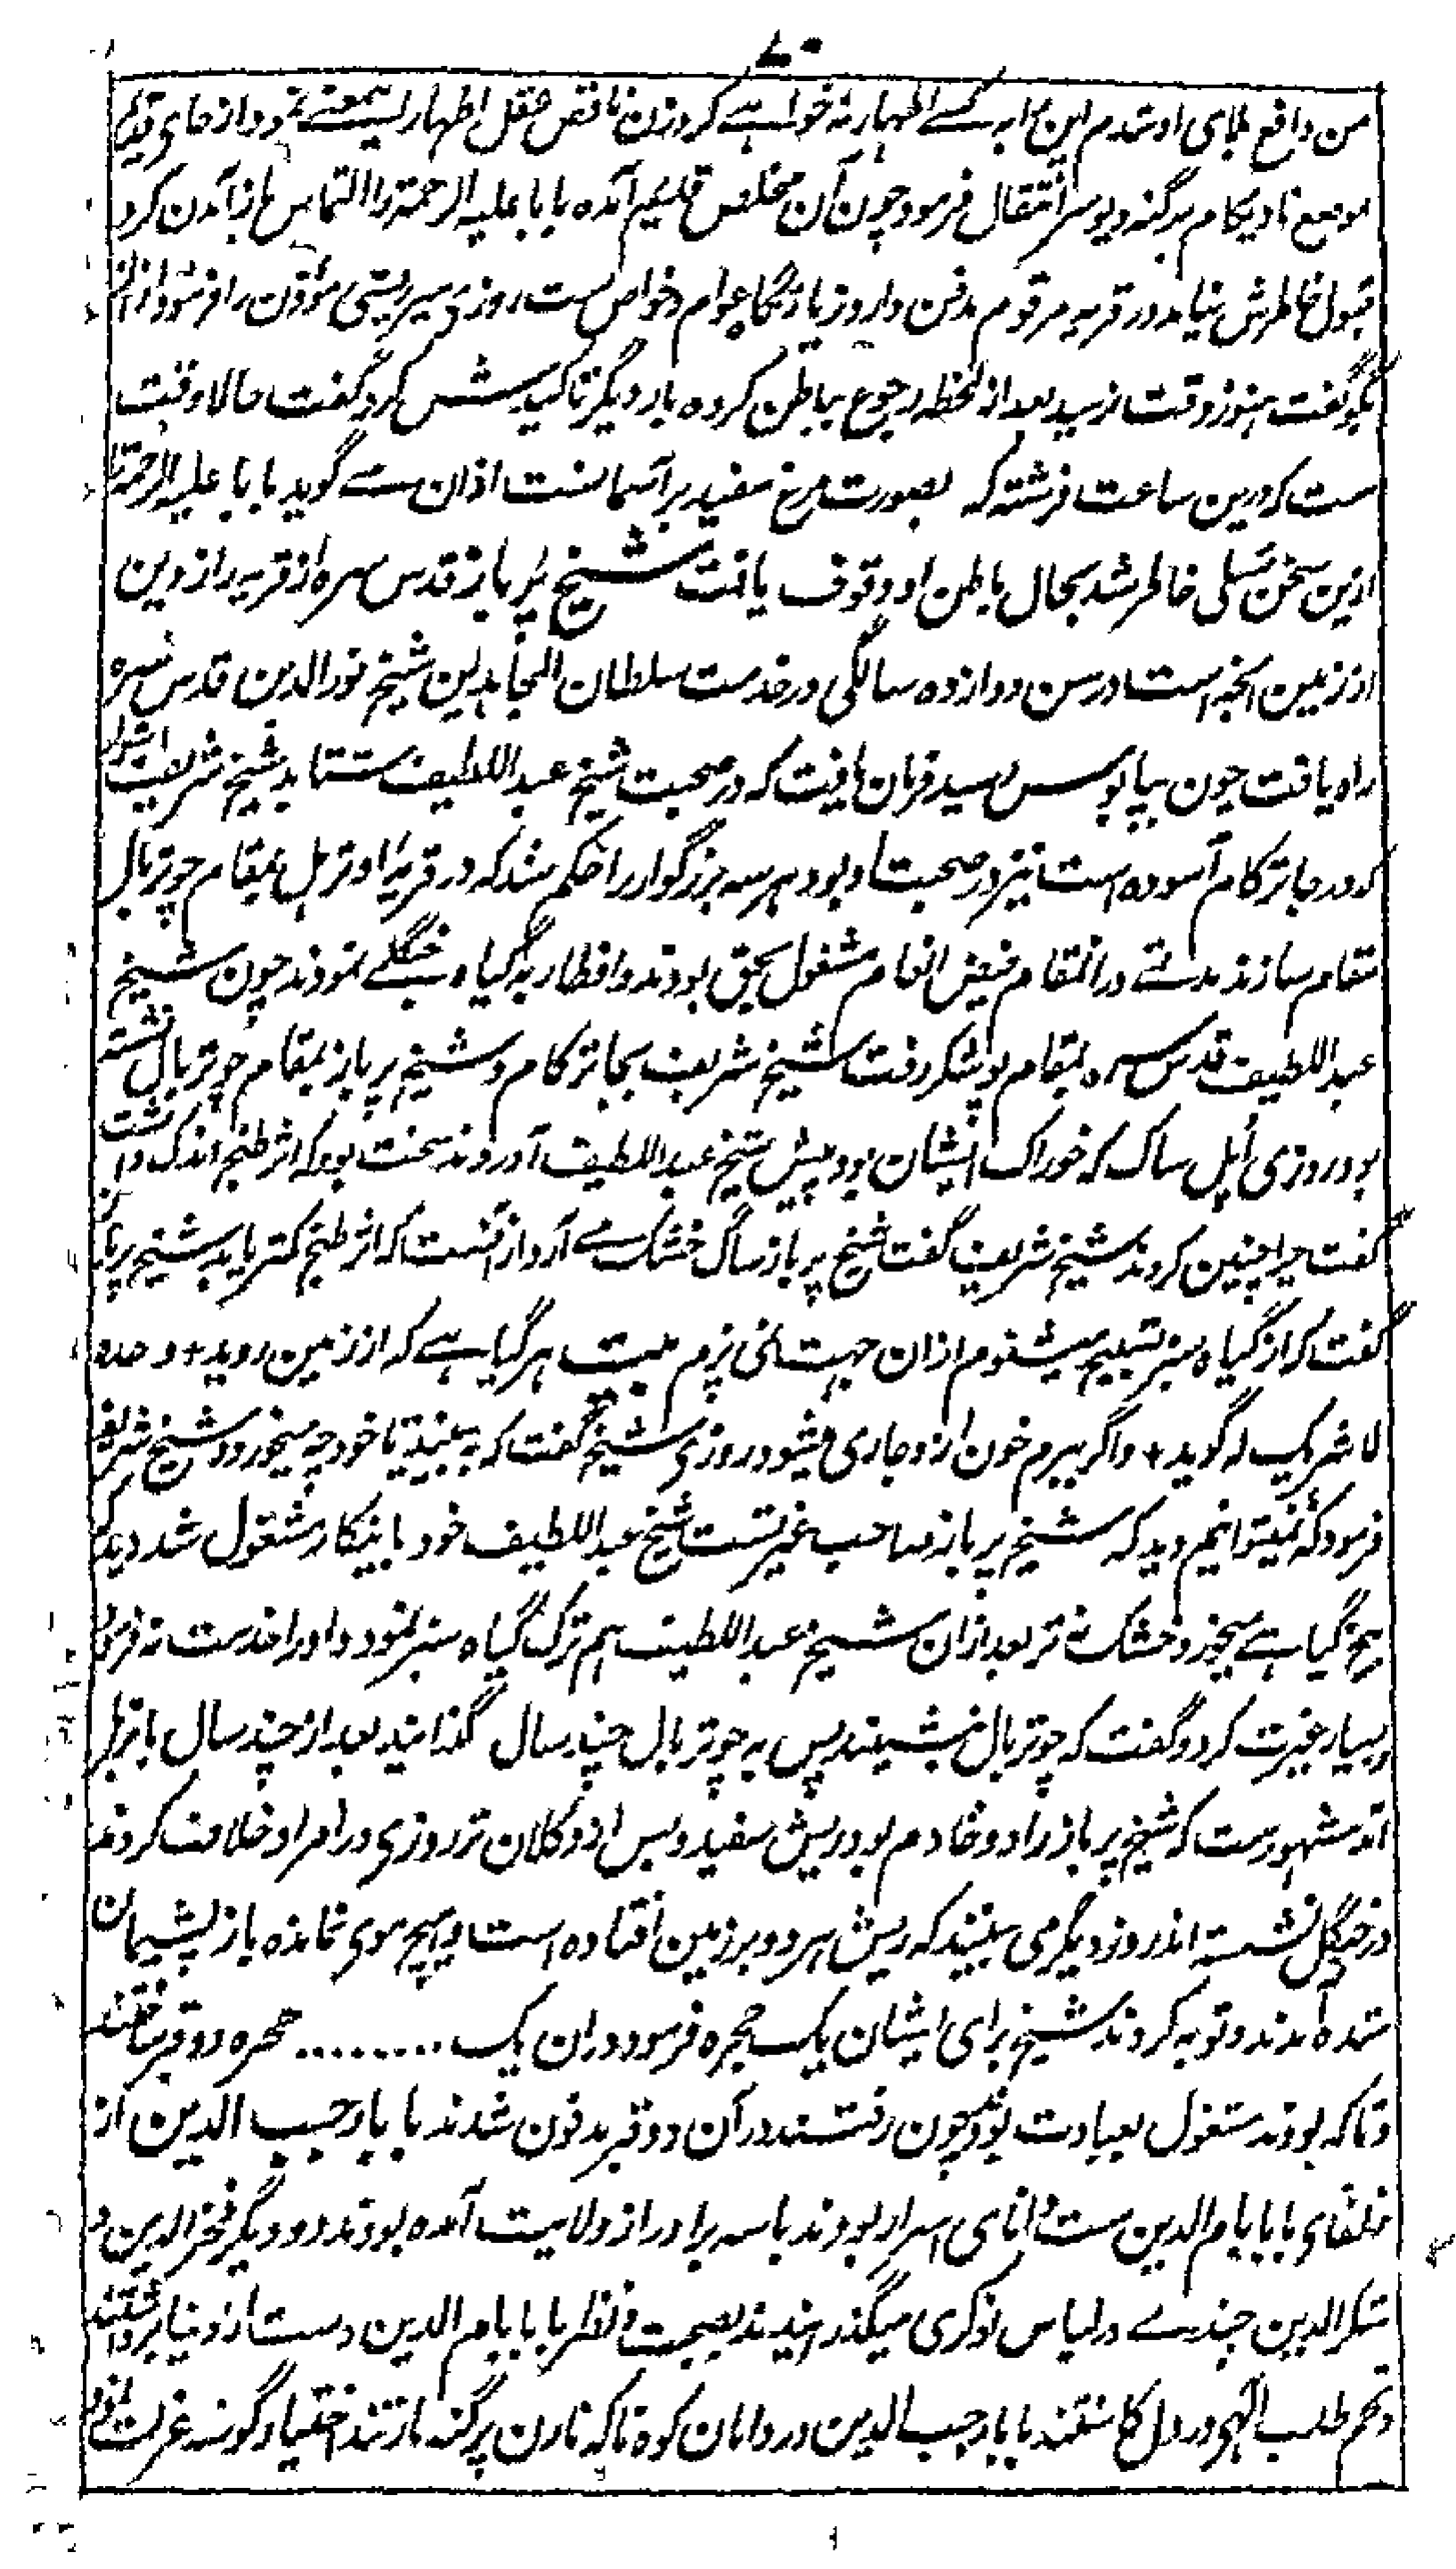 من دافع بلای او شدم این را به کسے اظهار نه خواہے کرد زن ناقص عقل اظهار این معنے نمود از جای
موضع نادیکام پرگنه دیوسر انتقال فرمود چون آن مخلص قدیم آمده بابا علیه الرحمة را التماس باز آمدن کرد
قبول خاطرش نیامد در قریه مرقوم مدفن دارد زیارتگاه عوام و خواص ست روزی میر بیتی مؤذن را فرمود اذان
بگو گفت هنوز وقت نرسید بعد از لحظه رجوع بباطن کرده بار دیگر تاکیدش کرد گفت حالا وقت
ست که درین ساعت فرشته که بصورت مرغ سفید بر آسمانست اذان مے گوید بابا علیه الرحمة را
ازین سخن تسلی خاطر شد بحال باطن او وقوف یافت شیخ پر باز قدس سره از قریه رازوین
از زمین انجه است در سن دوازده سالگی در خدمت سلطان المجاهدین شیخ نورالدین قدس سره
راه یافت چون بپابوس رسید فرمان یافت که در صحبت شیخ عبداللطیف شتابد شیخ شریف اشوار
که در جاترکام آسوده است نیز در صحبت او بود هر سه بزرگوار را حکم شد که در قریه اوترهل بمقام چوتربال
مقام سازند مدتے در انمقام فیض انعام مشغول بحق بودند و افطار به گیاه جنگلے نمودند چون شیخ
عبداللطیف قدس سره بمقام پوشکر رفت شیخ شریف بجاترکام و شیخ پر باز بمقام چوتربال نشسته
بود روزی اپل ساک که خوراک ایشان بود پیش شیخ عبداللطیف آوردند سخت بود که اثر طبخ اندک داشت
گفت چرا چنین کردند شیخ شریف گفت شیخ پر باز ساگ خشک مے آرد از آنست که اثر طبخ کمتر یابد شیخ پر باز
گفت که از گیاه سبز تسبیح میشنوم ازان جهت نمی برم بیت هر گیاہے که از زمین روید + وحده
لا شریک له گوید + و اگر ببرم خون ازو جاری میشود روزی شیخ گفت که به بینید تا خود چه میخورد شیخ شریف
فرمود که نمیتوانیم دید که شیخ پر باز صاحب غیرتست شیخ عبداللطیف خود باینکار مشغول شد دید که
بیخ گیاہے میخورد خشک نه تر بعد ازان شیخ عبداللطیف هم ترک گیاه سبز نمود و او را خدمت نه فرمود
بسیار غیرت کرد و گفت که چوتربال بنشیند پس به چوتربال چند سال گذانید بعد از چند سال
اند مشهورست که شیخ پر باز را دو خادم بود ریش سفید و بس ازو کلان تر روزی در امر او خلاف کردند
در جنگل نشسته اند روز دیگر می بینند که ریش هر دو بر زمین افتاده است و هیچ موی نمانده باز پشیمان
شده آمدند و توبه کردند شیخ برای ایشان یک حجره فرمود دران یک ......... حجره دو قبر ساختند
و تا که بودند مشغول بعبادت بودند چون رفتند در آن دو قبر مدفون شدند بابا رجب الدین از
خلفای بابا بام الدین ست دانای اسرار بودند با سه برادر از ولایت آمده بودند و دیگر فخر الدین و
شکر الدین چندے در لباس نوکری میگذرانیدند بصحبت و نظر بابا بام الدین دست از دنیا برداشتند
و تخم طلب الهی در دل کاشتند بابا رجب الدین در دامان کوه تا که نارن پرگنه مارتند اختیار گوشه عزلت